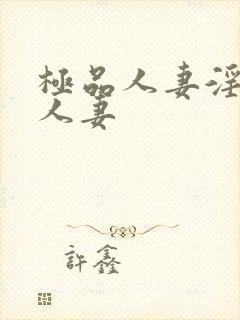 極品人妻淫
人妻
許鑫